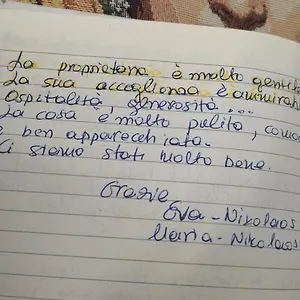 La proprietaria è molto gentile
La sua accoglienza è ammirab
ospitalità, generosità...
La casa è molto pulita, como
e ben apparecchiata.
Ci siamo stati molto bene.
Grazie
Eva - Nikolaos
Maria - Nikolaos